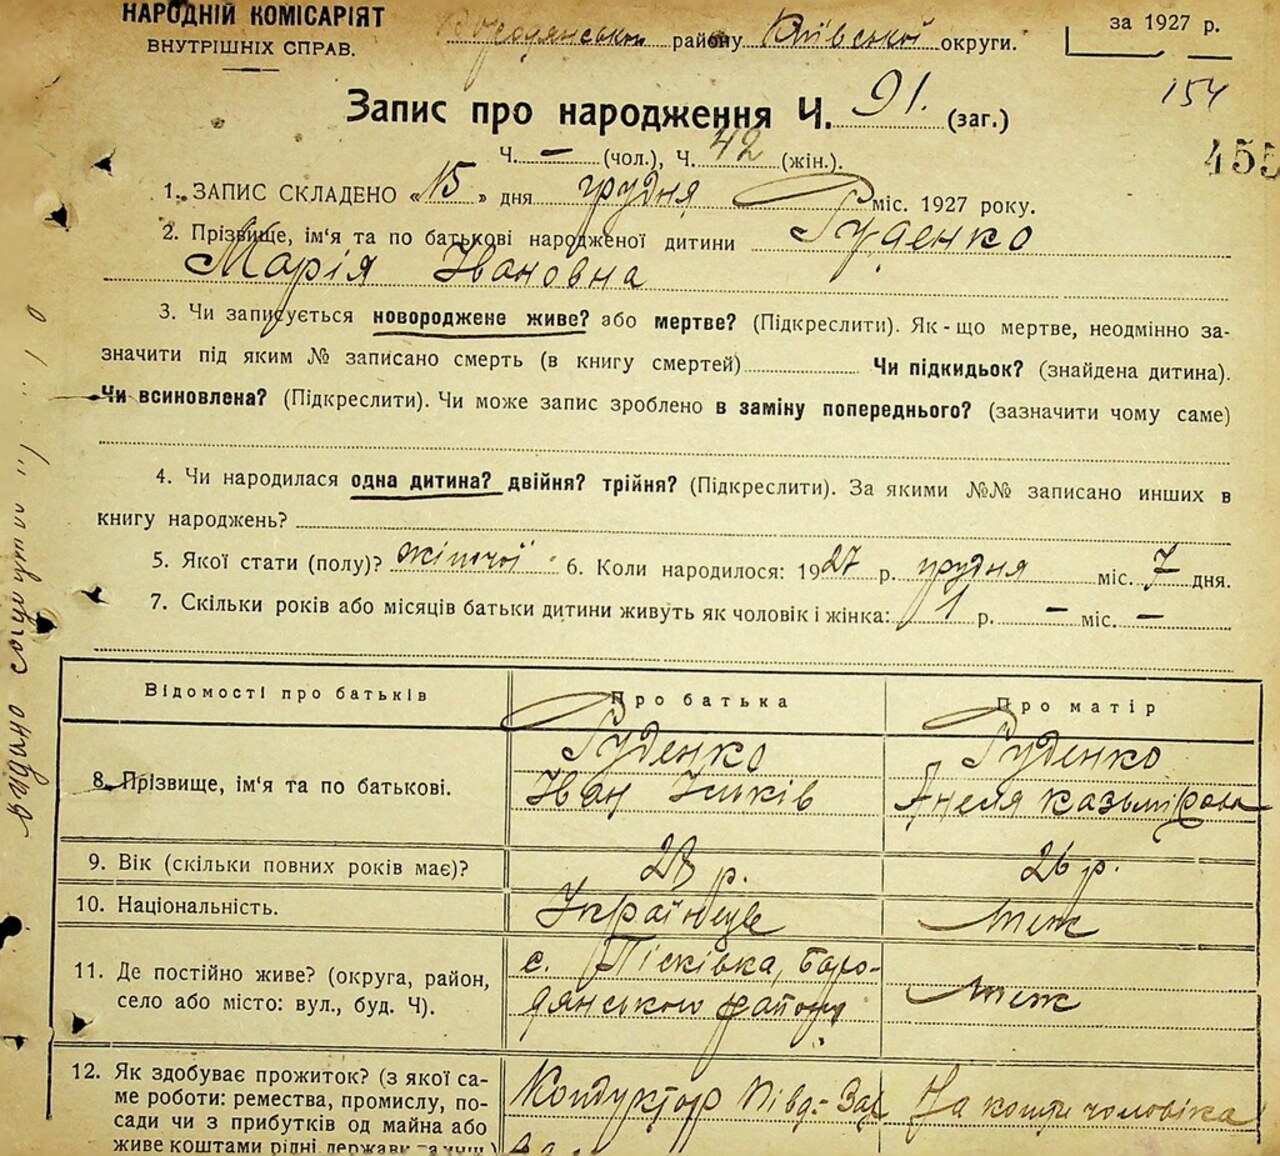 НАРОДНІЙ КОМІСАРІЯТ
ВНУТРІШНІХ СПРАВ.
Бородянськом району Київської округи.
за 1927 р.
154
455
Запис про народження Ч. 91. (заг.)
Ч. — (чол.), Ч. 42 (жін.).
1. ЗАПИС СКЛАДЕНО «15» дня грудня міс. 1927 року.
2. Прізвище, ім'я та по батькові народженої дитини Руденко
Марія Івановна
3. Чи записується новороджене живе? або мертве? (Підкреслити). Як-що мертве, неодмінно за-
значити під яким № записано смерть (в книгу смертей) Чи підкидьок? (знайдена дитина).
Чи всиновлена? (Підкреслити). Чи може запис зроблено в заміну попереднього? (зазначити чому саме)
4. Чи народилася одна дитина? двійня? трійня? (Підкреслити). За якими №№ записано инших в
книгу народжень?
5. Якої стати (полу)? жіночої 6. Коли народилося: 1927 р. грудня міс. 7 дня.
7. Скільки років або місяців батьки дитини живуть як чоловік і жінка: 1 р. — міс. —
Відомості про батьків Про батька Про матір
8. Прізвище, ім'я та по батькові. Руденко Іван Руденко Анеля Казьмірова
9. Вік (скільки повних років має)? 28 р. 26 р.
10. Національність. Українець теж
11. Де постійно живе? (округа, район,
село або місто: вул., буд. Ч).
с. Пісківка, Боро-
дянського району
теж
12. Як здобуває прожиток? (з якої са-
ме роботи: ремества, промислу, по-
сади чи з прибутків од майна або
живе коштами рідні, держави та инш.)
Кондуктор Півд.-Зах
На кошти чоловіка
видано